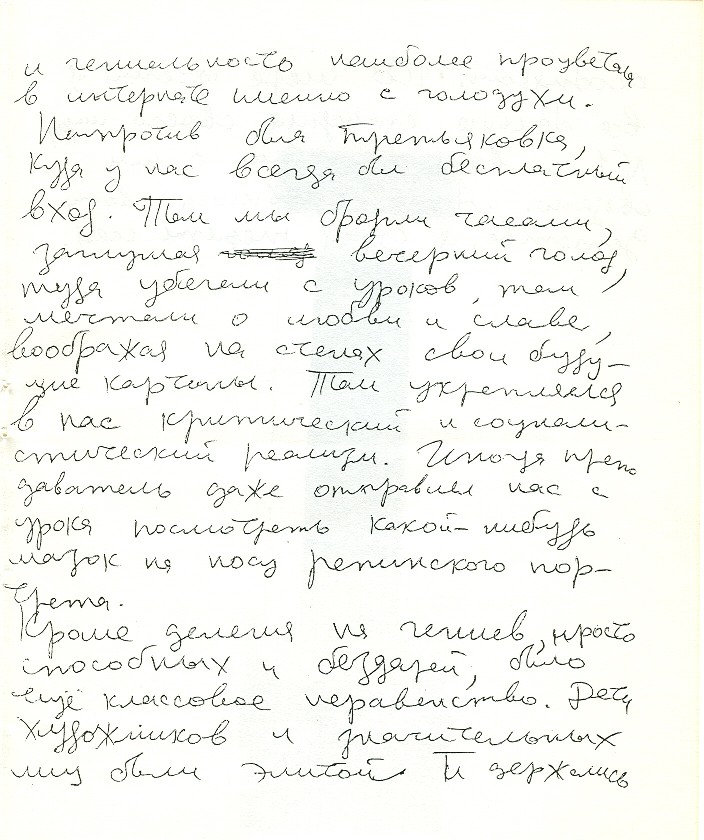 и гениальность наиболее процветала
в интернате именно с голодухи.
Напротив была Третьяковка,
куда у нас всегда был бесплатный
вход. Там мы бродили часами,
заглушая вечерний голод,
туда убегали с уроков, там
мечтали о любви и славе,
воображая на стенах свои буду-
щие картины. Там укреплялся
в нас критический и социали-
стический реализм. Иногда препо
даватель даже отправлял нас с
урока посмотреть какой-нибудь
мазок на носу репинского пор-
трета.
Кроме деления на гениев, просто
способных и бездарей, было
ещё классовое неравенство. Дети
художников и значительных
лиц были элитой. И держались